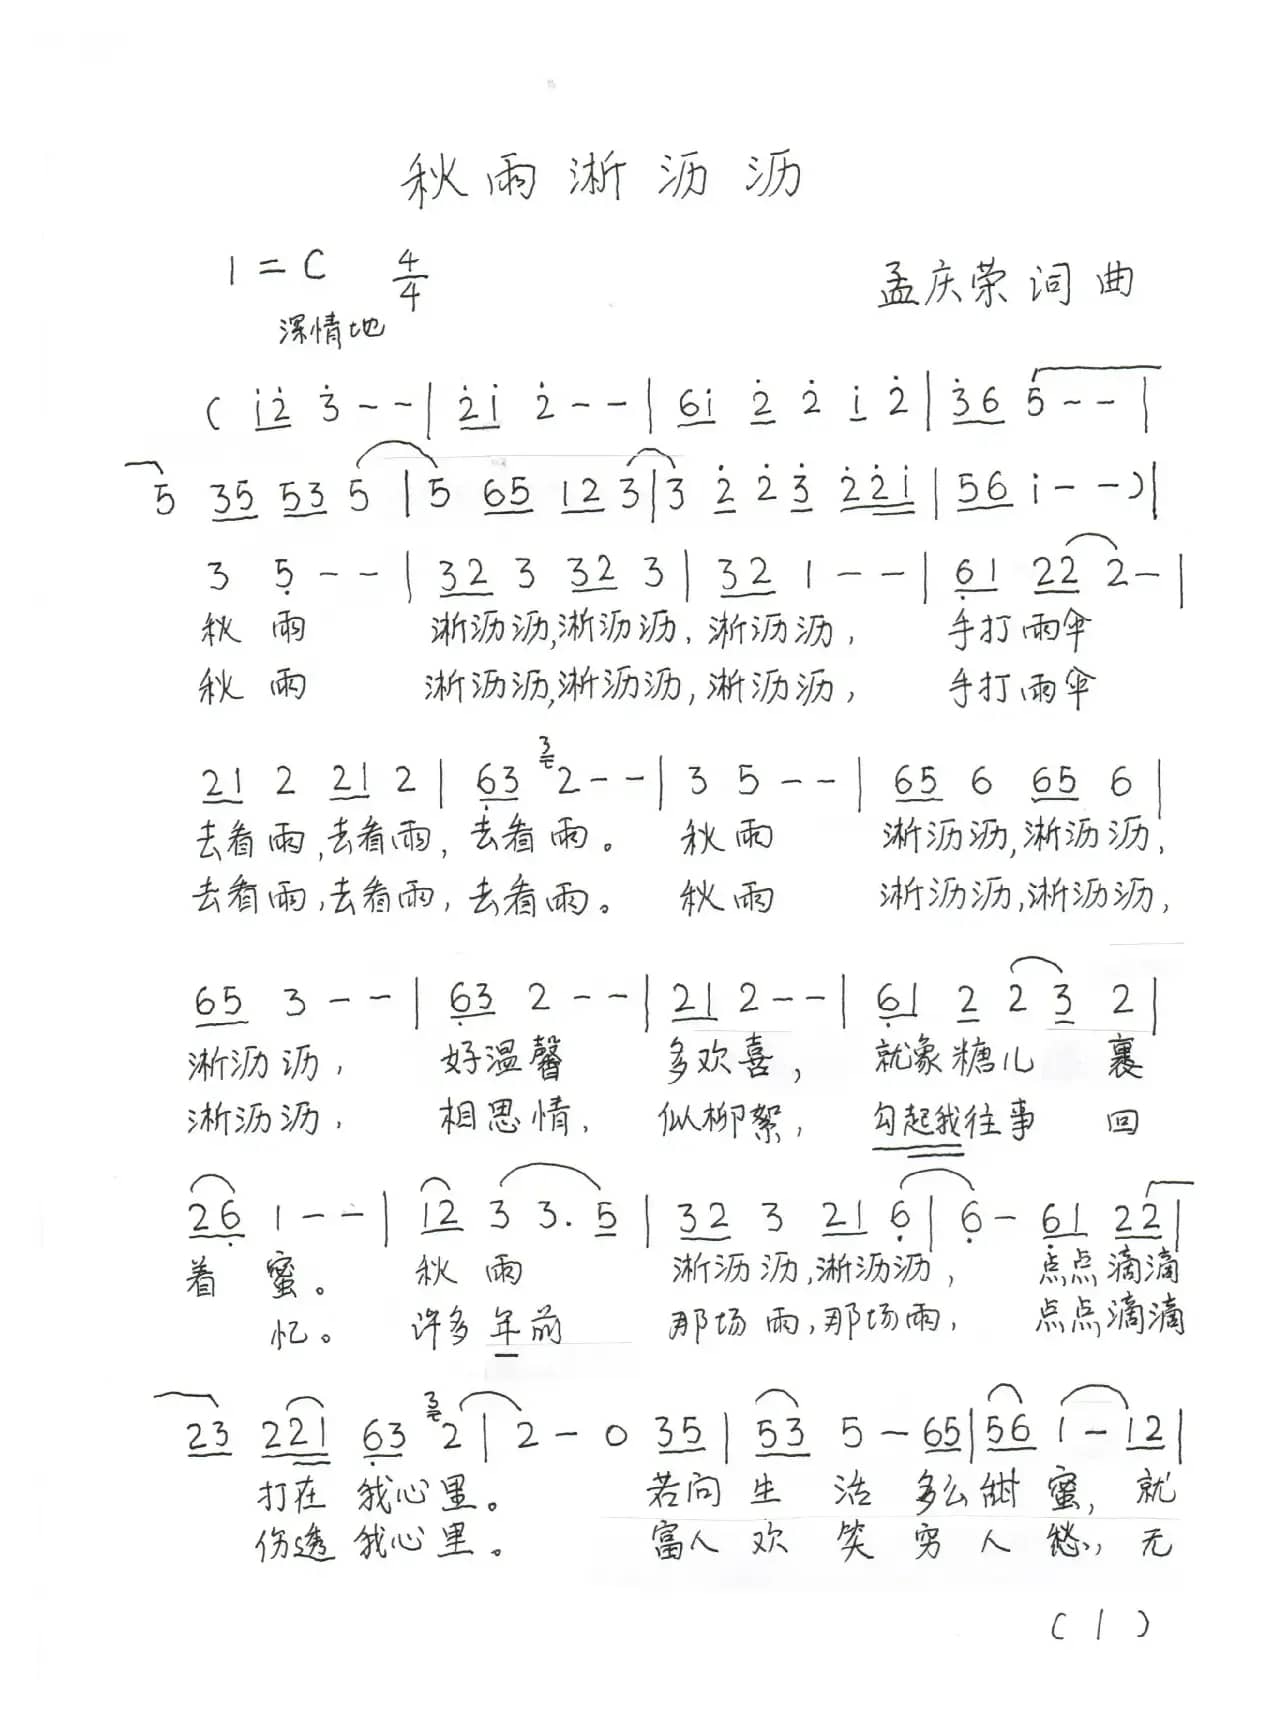 秋雨淅沥沥
1=C 4/4
孟庆荣词曲
深情地
( i̇2̇ 3̇ - - | 2̇i̇ 2̇ - - | 6i̇ 2̇ 2̇ i̇ 2̇ | 3̇6 5 - - |
5 35 53 5 | 5 65 12 3 | 3 2̇ 2̇ 3̇ 2̇2̇i̇ | 56 i - - ) |
3 5̣ - - | 32 3 32 3 | 32 1 - - | 6̣1 22 2 - |
秋雨 淅沥沥,淅沥沥, 淅沥沥, 手打雨伞
秋雨 淅沥沥,淅沥沥, 淅沥沥, 手打雨伞
21 2 21 2 | 6̣3 3 2 - - | 3 5 - - | 65 6 65 6 |
去看雨,去看雨, 去看雨。 秋雨 淅沥沥,淅沥沥,
去看雨,去看雨, 去看雨。 秋雨 淅沥沥,淅沥沥,
65 3 - - | 6̣3 2 - - | 21 2 - - | 6̣1 2 2 3 2 |
淅沥沥, 好温馨 多欢喜, 就象糖儿 裹
淅沥沥, 相思情, 似柳絮, 勾起我往事 回
26̣ 1 - - | 12 3 3. 5 | 32 3 21 6̣ | 6̣ - 6̣1 22 |
着 蜜。 秋 雨 淅沥沥,淅沥沥, 点点滴滴
忆。 许多年前 那场雨,那场雨, 点点滴滴
23 221 6̣3 3 2 | 2 - 0 35 | 53 5 - 65 | 56 1 - 12 |
打在 我心里。 若问 生 活 多么 甜 蜜, 就
伤透 我心里。 富人 欢 笑 穷 人 愁, 无
( 1 )